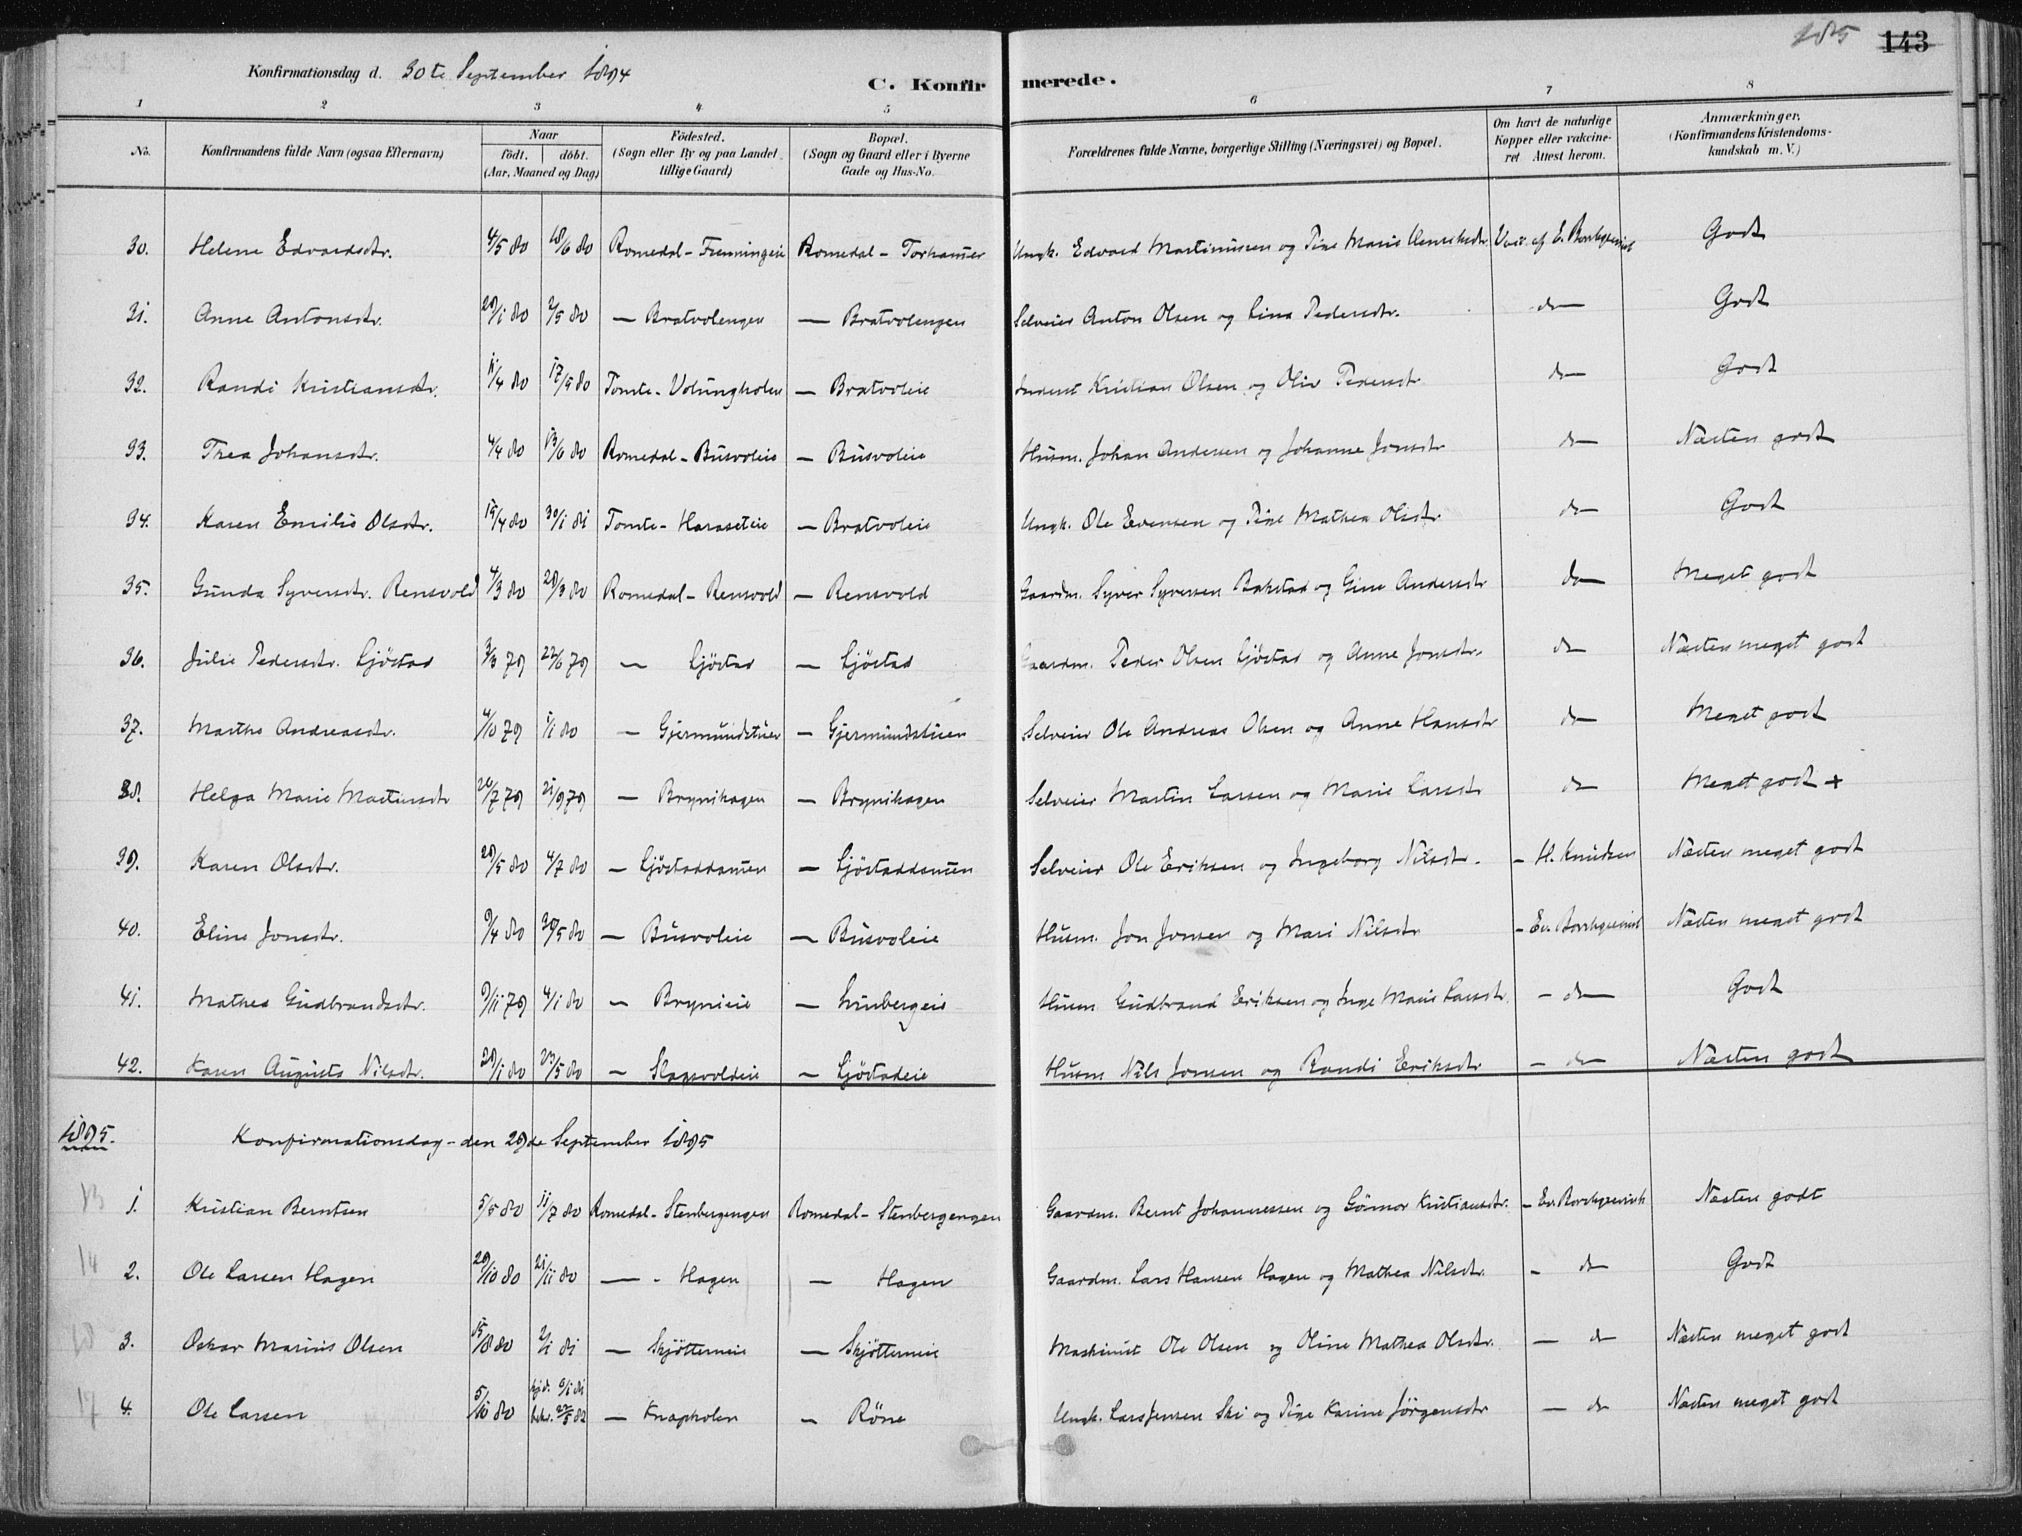 185 143
Konfirmationsdag d. 30te September 1894
C. Konfirmerede.
1 2 3 4 5 6 7 8
No. Konfirmandens fulde Navn (ogsaa Efternavn) Naar födt. döbt. (Aar, Maaned og Dag) Födested. (Sogn eller By og paa Landet tillige Gaard) Bopæl. (Sogn og Gaard eller i Byerne Gade og Hus-No. Forældrenes fulde Navne, borgerlige Stilling (Næringsvei) og Bopæl. Om havt de naturlige Kopper eller vakcineret. Attest herom. Anmærkninger. (Konfirmandens Kristendomskundskab m. V.)
30. Helene Edvardsdtr. 4/5 80 18/6 80 Romedal - Frenningeie Romedal - Torhamer Ungk. Edvard Martinussen og Pige Marie Vac. af E. Borchgrevink Godt
31. Anne Antonsdtr. 29/1 80 2/5 80 — Bratvolengen — Bratvolengen Selveier Anton Olsen og Lina Pedersdtr. do Godt
32. Randi Kristiansdtr. 11/4 80 17/5 80 Tomte - Volungholen — Bratvoleie Kristian Olsen og Oliv Pedersdtr do Godt
33. Thea Johansdtr. 4/4 80 13/6 80 Romedal - Busvoleie — Busvoleie Husm. Johan Andersen og Johanne Jonsdtr do Næsten godt
34. Karen Emilie Olsdtr. 15/4 80 30/1 81 Tomte - Haraseteie — Bratvoleie Ungk. Ole Evensen og Pige Mathea Olsdtr do Godt
35. Gunda Syversdtr. Rensvold 4/3 80 28/3 80 Romedal - Rensvold — Rensvold Gaardm. Syver Syversen Bakstad og Gine Andersdtr do Meget godt
36. Julie Pedersdtr. Ljöstad 3/3 79 22/6 79 — Ljöstad — Ljöstad Gaardm. Peder Olsen Ljöstad og Anne Jonsdtr. do Næsten meget godt
37. Marthe Andreasdtr. 4/10 79 1/1 80 — Gjermundstuen — Gjermundstuen Selveier Ole Andreas Olsen og Anne Hansdtr do Meget godt
38. Helga Marie Martinsdtr 26/7 79 21/9 79 — Brynihagen — Brynihagen Selveier Martin Larsen og Marie Larsdtr do Meget godt +
39. Karen Olsdtr. 29/5 80 4/7 80 — Ljöstaddamen — Ljöstaddamen Selveier Ole Eriksen og Ingeborg Nilsdtr. - H. Knudsen Næsten meget godt
40. Eline Jonsdtr. 9/4 80 30/5 80 — Busvoleie — Busvoleie Husm. Jon Jonsen og Mari Nilsdtr - Ev. Borchgrevink Næsten meget godt
41. Mathea Gudbrandsdtr. 9/11 79 4/1 80 — Brynieie — Linbergeie Husm Gudbrand Eriksen og Inge Marie Larsdtr. - do Godt
42. Karen Augusta Nilsdtr. 29/1 80 23/5 80 — Slagsvoldeie — Ljöstadeie Husm Nils Jonsen og Randi Eriksdtr - do Næsten godt
1895. Konfirmationsdag - den 29de September 1895
13 1. Kristian Berntsen 5/5 80 11/7 80 Romedal - Stenbergengen Romedal - Stenbergengen Gaardm. Bernt Johannessen og Gönnor Kristiansdtr. - Ev. Borchgrevink Næsten godt
14 2. Ole Larsen Hagen 29/10 80 21/11 80 — - Hagen — Hagen Gaardm. Lars Hansen Hagen og Mathea Nilsdtr. - do Godt
3. Oskar Marius Olsen 15/8 80 2/1 81 — Skjötterneie — Skjötterneie Maskinist Ole Olsen og Oline Mathea Olsdtr. — do Næsten meget godt
17 4. Ole Larsen 5/10 80 hjd. 6/1 81 bekr. 27/8 82 — Knapholen — Röne Ungk. Lars Jensen Ski og Pige Karine Jörgensdtr — do Næsten meget godt